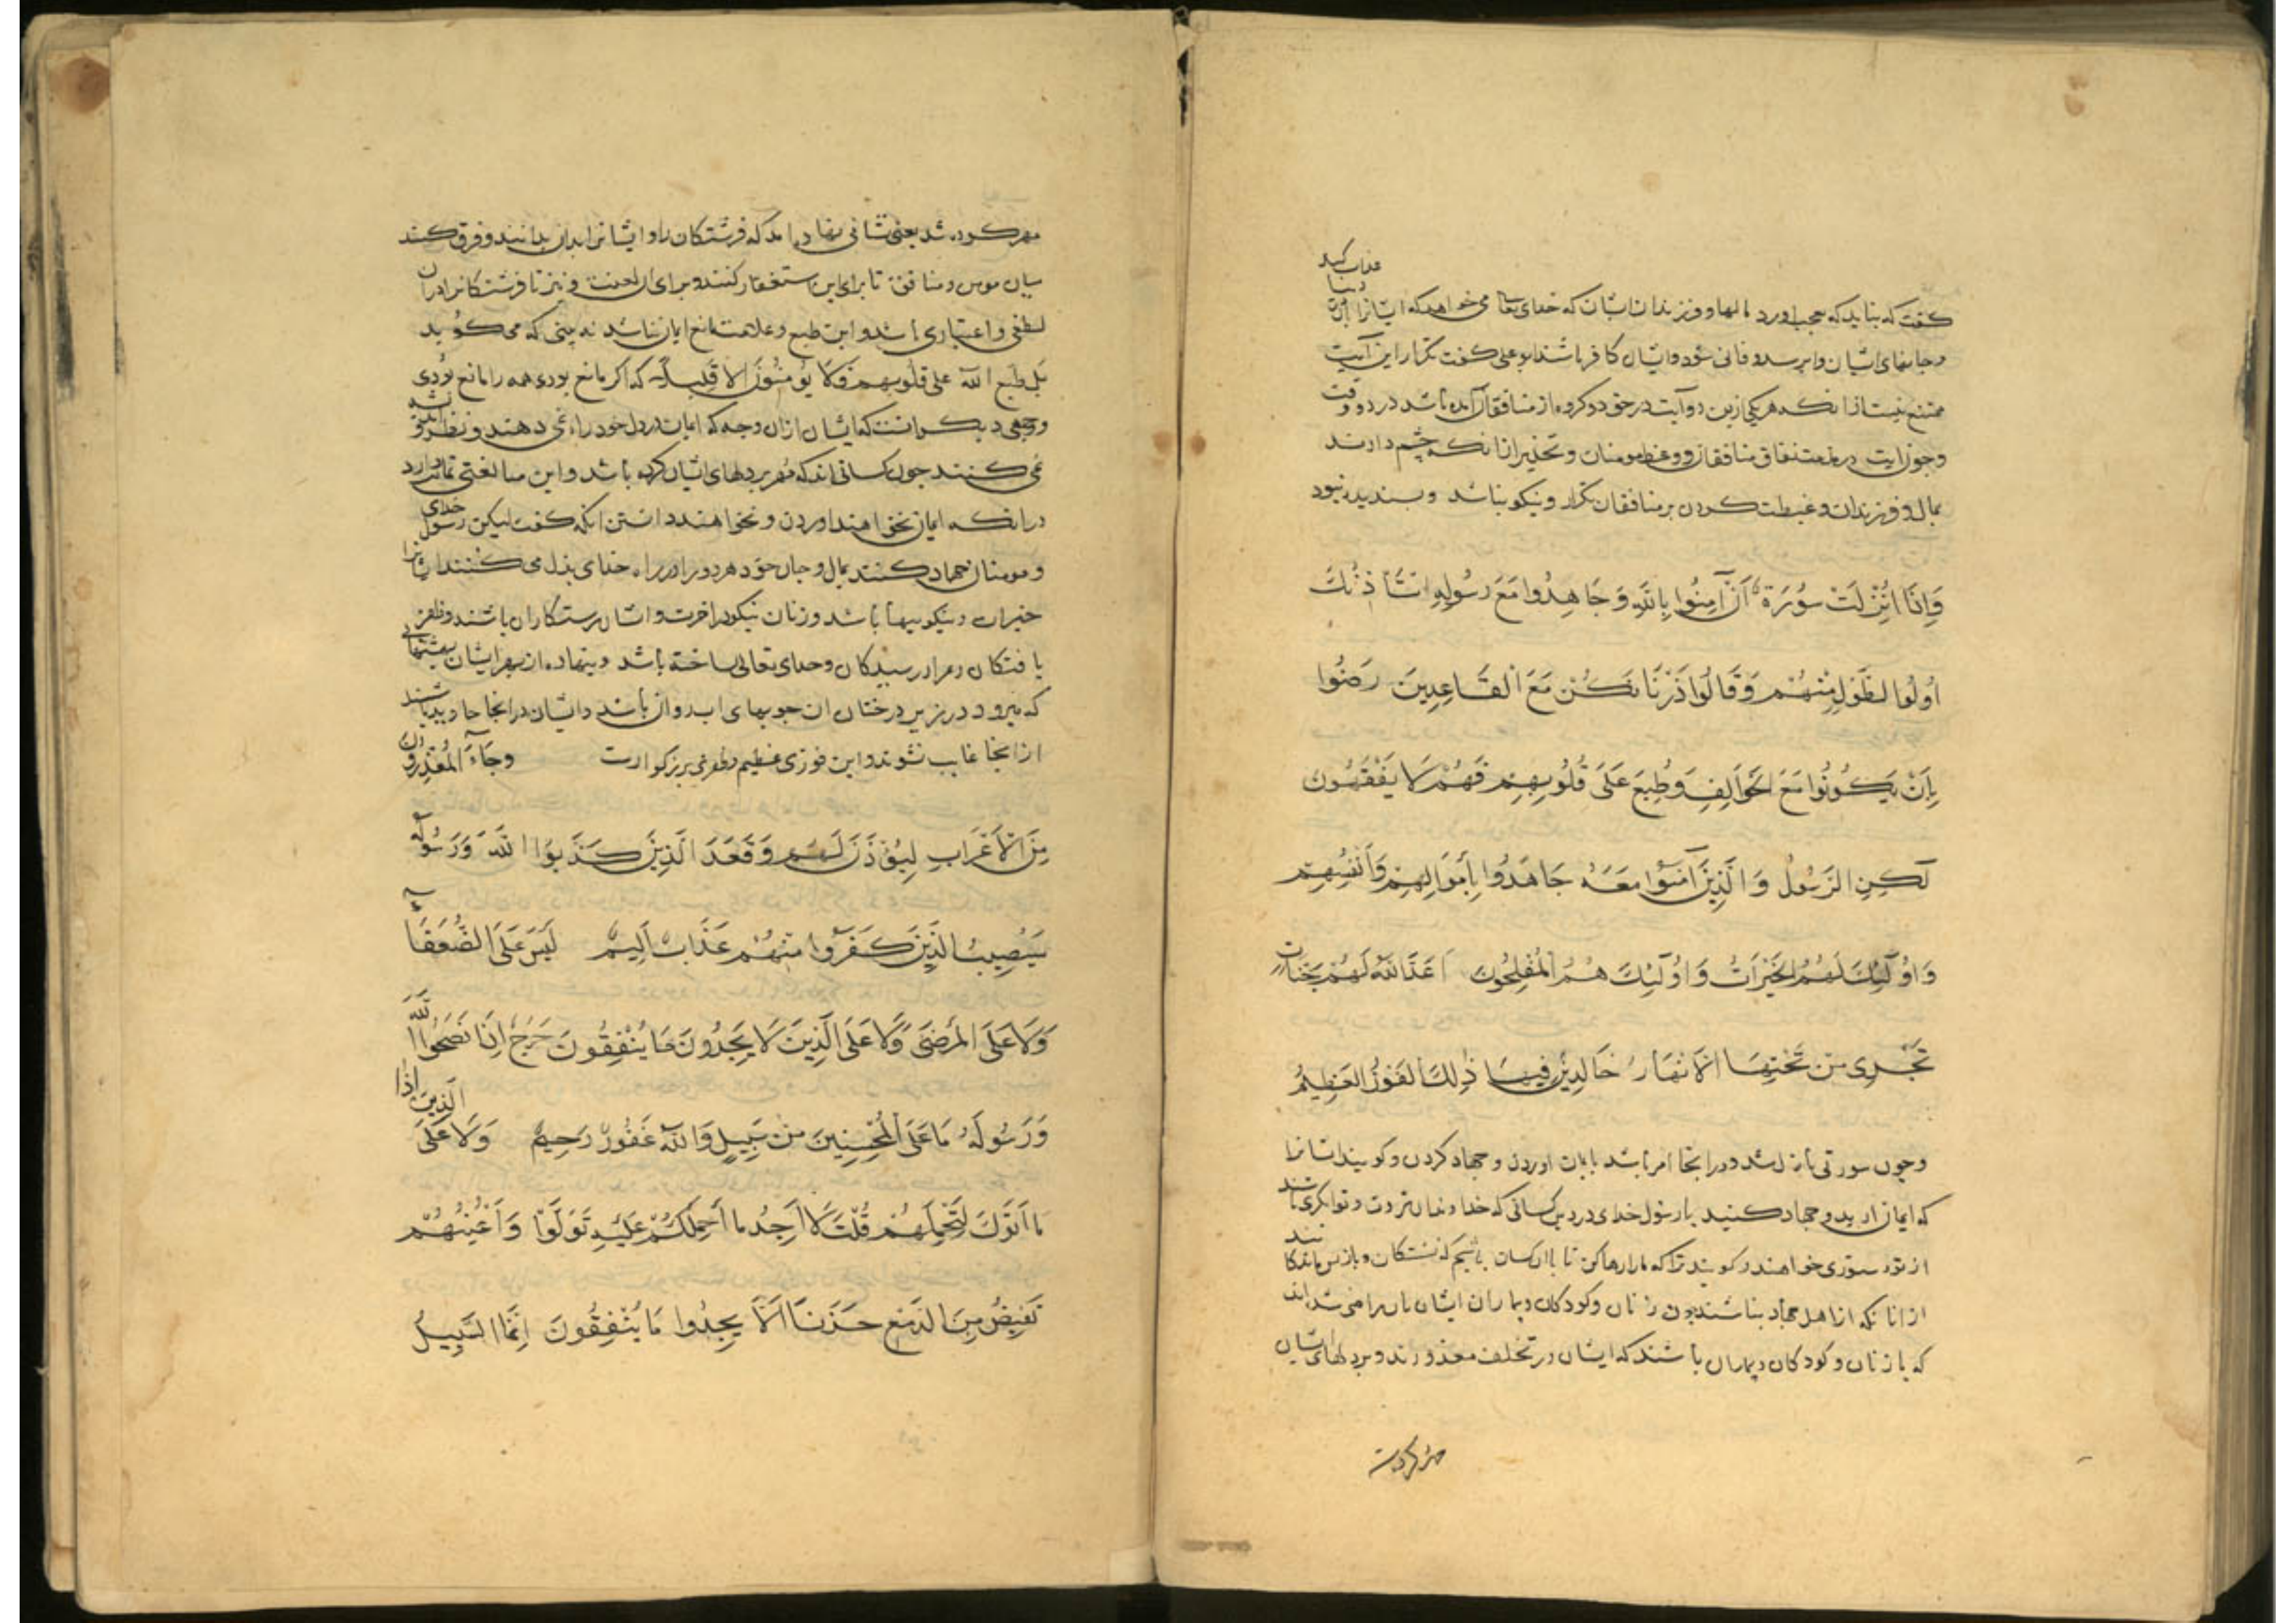 عذاب کند
دنیا
کفت که نباید که بعجب اورد مالها و فرزندان ایشان که خدای تعا می خواهد که ایشانرا بران در
و جانهای ایشان وابر سد و فانی شود و ایشان کافر باشند ابوعلی کفت تکرار این آیت
ممتنع نیست ازانکه هر یکی ازین دو آیت در حق دو کروه از منافقان آمده باشد در دو وقت
نفاق منافقان و وعظ مومنان و تحذیر ازانکه چشم دارند
بمال و فرزندان و غبطت کردن بر منافقان تکرار و نیکو باشد و بسندیده بود
وَاِذَا اُنْزِلَتْ سُورَةٌ اَنْ آمِنُوا بِاللّٰهِ وَجَاهِدُوا مَعَ رَسُولِهِ اسْتَأْذَنَكَ
اُولُوا الطَّوْلِ مِنْهُمْ وَقَالُوا ذَرْنَا نَكُنْ مَعَ الْقَاعِدِينَ رَضُوا
بِاَنْ يَكُونُوا مَعَ الْخَوَالِفِ وَطُبِعَ عَلَى قُلُوبِهِمْ فَهُمْ لَا يَفْقَهُونَ
لٰكِنِ الرَّسُولُ وَالَّذِينَ آمَنُوا مَعَهُ جَاهَدُوا بِاَمْوَالِهِمْ وَاَنْفُسِهِمْ
وَاُولٰئِكَ لَهُمُ الْخَيْرَاتُ وَاُولٰئِكَ هُمُ الْمُفْلِحُونَ اَعَدَّ اللّٰهُ لَهُمْ جَنَّاتٍ
تَجْرِى مِنْ تَحْتِهَا الْاَنْهَارُ خَالِدِينَ فِيهَا ذٰلِكَ الْفَوْزُ الْعَظِيمُ
و چون سورتی نازل شد و درانجا امر باشد بایمان اوردن و جهاد کردن و کویند ایشانرا
که ایمان ارید و جهاد کنید با رسول خدای در دین کسانی که خداوندان ثروت و توانکری باشند
از تو دستوری خواهند و کویند ترا که ما را رها کن تا با ان کسان باشیم که نشستکان و بازبس ماندکانند
از انانکه از اهل جهاد نباشند چون زنان و کودکان و بیماران ایشان بان راضی شده اند
که با زنان و کودکان و بیماران باشند که ایشان در تخلف معذورند و بر دلهای ایشان
مهر کرده شد
مهر کرده شد یعنی نشانی نهاده اند که فرشتکان را و ایشانرا بدان بدانند و فرق کنند
میان مومن و منافق تا برای این استغفار کنند و برای ان لعنت و نیز تا فرشتکانرا دران
لطفی و اعتباری باشد و این طبع و علامت مانع ایمان نباشد نه بینی که می کوید
بَل طَبَعَ اللّٰهُ عَلَى قُلُوبِهِمْ فَلَا يُؤْمِنُونَ اِلَّا قَلِيلًا که اکر مانع بودی همه را مانع بودی
و وجهی دیکر انست که ایشان ازان وجه که ایمان در دل خود راه نمی دهند و نظر و اندیشه
نمی کنند چون کسانی اند که مهر بر دلهای ایشان کرده باشد و این مبالغتی تمام دارد
درانکه ایمان نخواهند اوردن و نخواهند دانستن انکه کفت لیکن رسول خدای
و مومنان جهاد کنند بمال و جان خود هر دو را در راه خدای بذل می کنند ایشانرا
خیرات و نیکوییها باشد و زنان نیکو در اخرت و ایشان رستکاران باشند و ظفر
یافتکان و مراد رسیدکان و خدای تعالی ساخته باشد و نهاده از بهر ایشان بهشتهایی
که میرود در زیر درختان ان جویهای اب روان باشد و ایشان درانجا جاوید باشند
ازانجا غایب نشوند و این فوزی عظیم و ظفری بزرکوارست وَجَاءَ الْمُعَذِّرُونَ
مِنَ الْاَعْرَابِ لِيُؤْذَنَ لَهُمْ وَقَعَدَ الَّذِينَ كَذَبُوا اللّٰهَ وَرَسُولَهُ
سَيُصِيبُ الَّذِينَ كَفَرُوا مِنْهُمْ عَذَابٌ اَلِيمٌ لَيْسَ عَلَى الضُّعَفَاءِ
وَلَا عَلَى الْمَرْضَى وَلَا عَلَى الَّذِينَ لَا يَجِدُونَ مَا يُنْفِقُونَ حَرَجٌ اِذَا نَصَحُوا لِلّٰهِ
وَرَسُولَهُ مَا عَلَى الْمُحْسِنِينَ مِنْ سَبِيلٍ وَاللّٰهُ غَفُورٌ رَحِيمٌ وَلَا عَلَى الَّذِينَ اِذَا
مَا اَتَوْكَ لِتَحْمِلَهُمْ قُلْتَ لَا اَجِدُ مَا اَحْمِلُكُمْ عَلَيْهِ تَوَلَّوْا وَاَعْيُنُهُمْ
تَفِيضُ مِنَ الدَّمْعِ حَزَنًا اَلَّا يَجِدُوا مَا يُنْفِقُونَ اِنَّمَا السَّبِيلُ